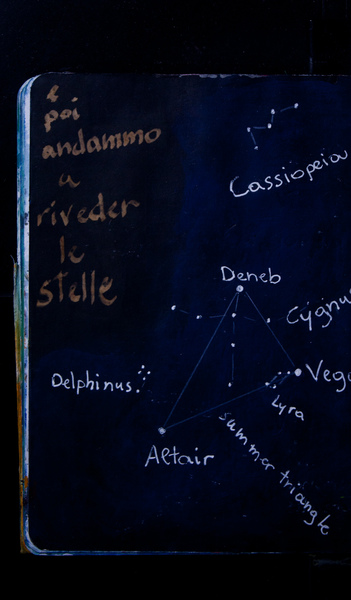 e
poi
andammo
a
riveder
le
stelle
Cassiopeia
Deneb
Cygnus
Vega
Delphinus
Lyra
Altair
summer triangle